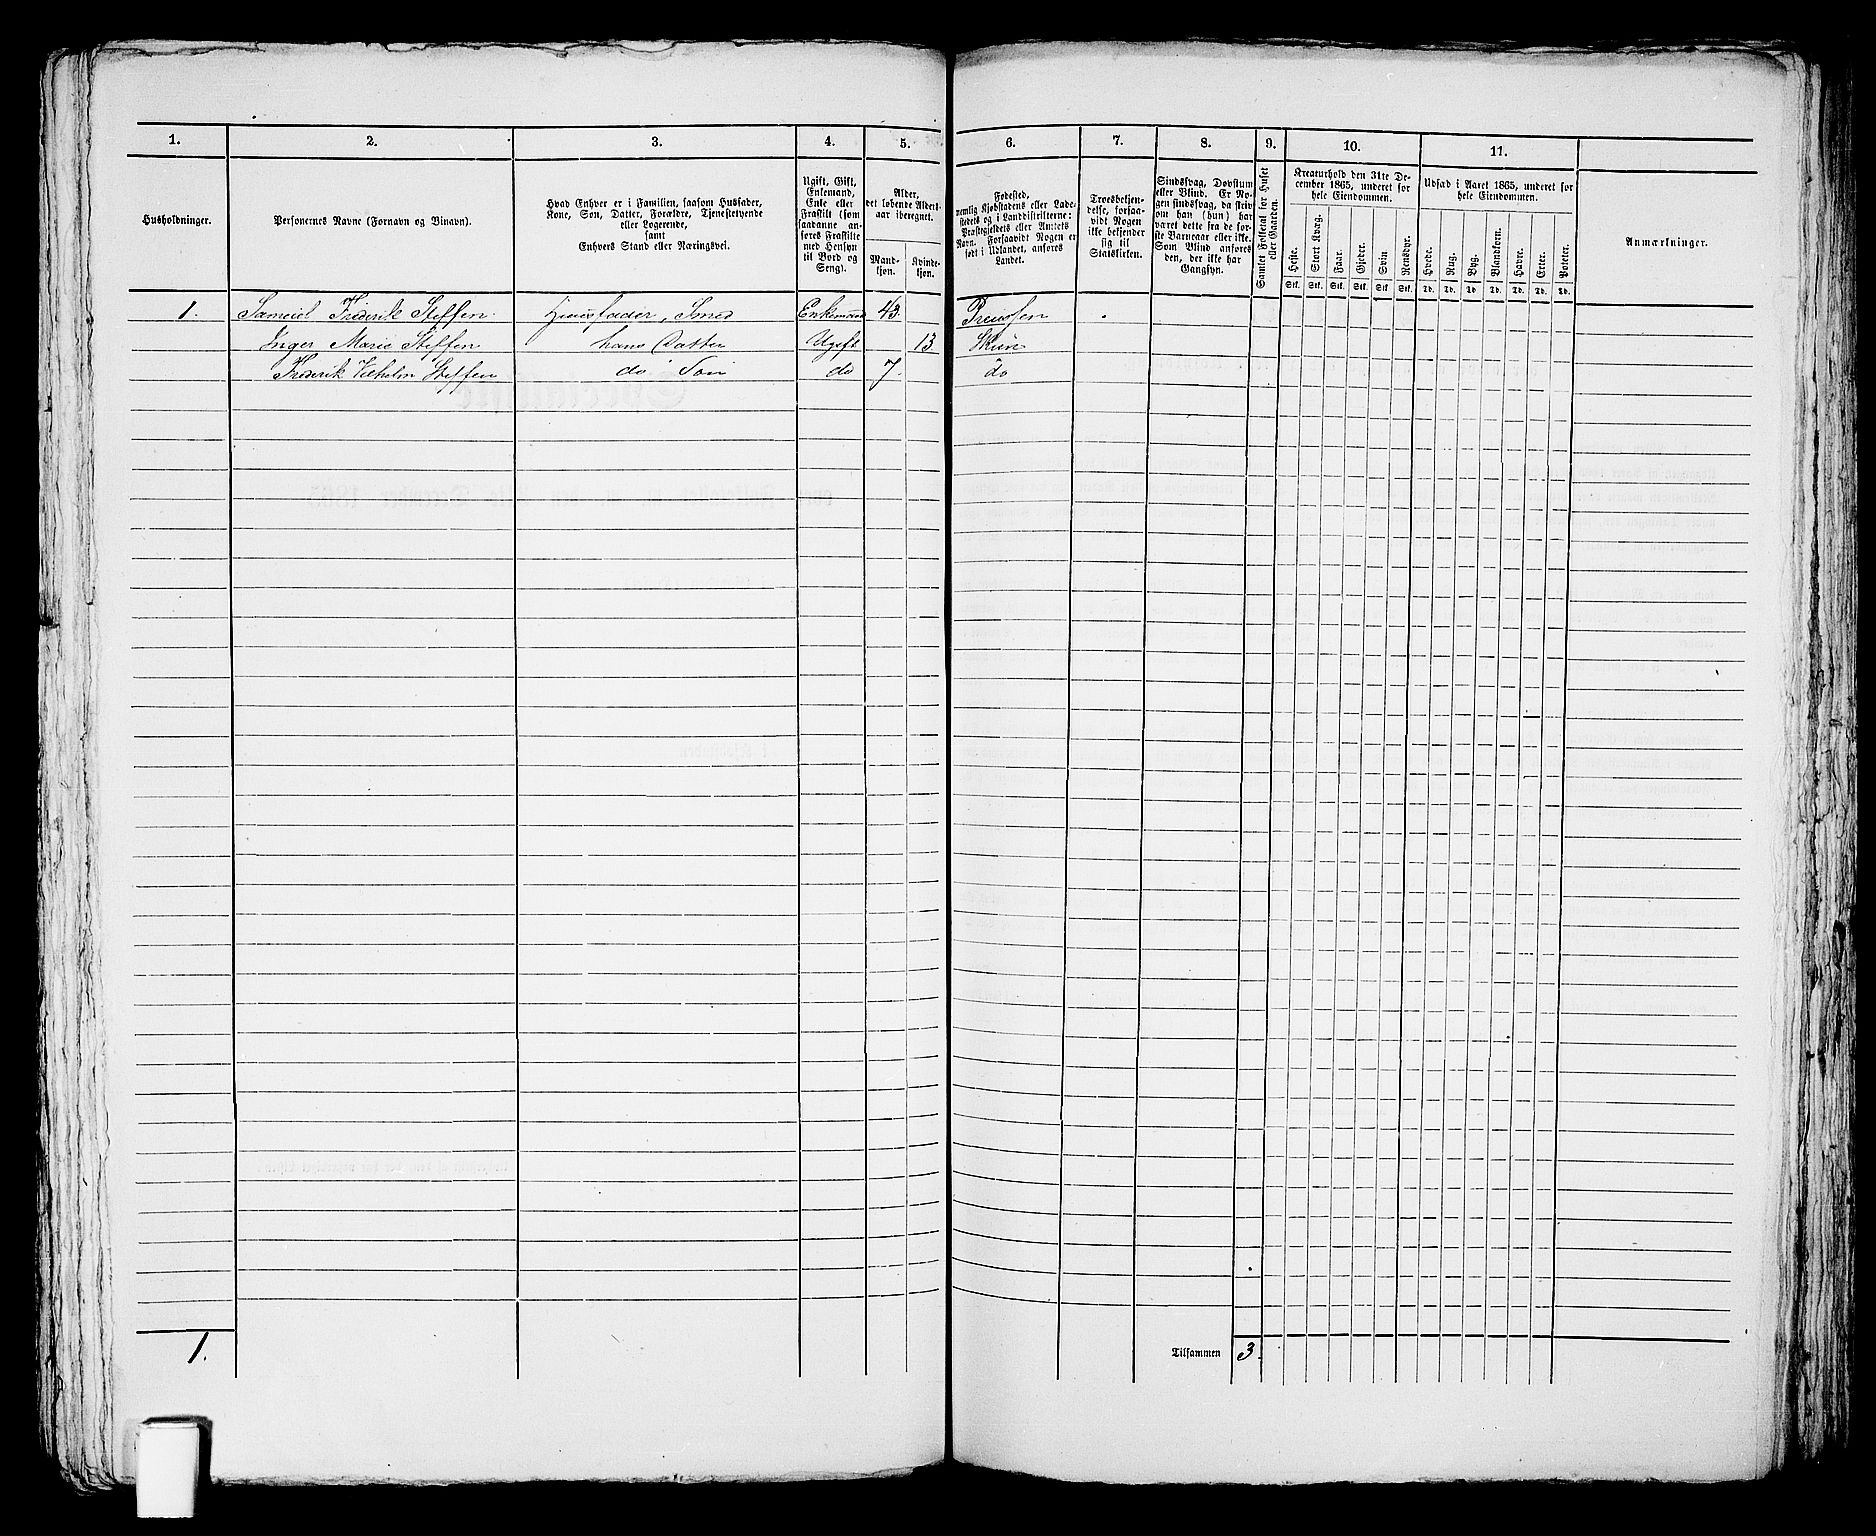 1. 2. 3. 4. 5. 6. 7. 8. 9. 10. 11.
Husholdninger.
Personernes Navne (Fornavn og Binavn).
Hvad Enhver er i Familien, saasom Husfader,
Kone, Søn, Datter, Forældre, Tjenestetyende
eller Logerende,
samt
Enhvers Stand eller Næringsvei.
Ugift, Gift,
Enkemand,
Enke eller
Fraskilt (som
saadanne an-
føres Fraskilte
med Hensyn
til Bord og
Seng).
Alder,
det løbende Alders-
aar iberegnet.
Mand-
kjøn.
Kvinde-
kjøn.
Fødested,
nemlig Kjøbstadens eller Lade-
stedets og i Landdistrikterne:
Præstegjeldets eller Amtets
Navn. Forsaavidt Nogen er
født i Udlandet, anføres
Landet.
Troesbekjen-
delse, forsaa-
vidt Nogen
ikke bekjender
sig til
Statskirken.
Sindssvag, Døvstum
eller Blind. Er No-
gen sindssvag, da skriv
om han (hun) har
været dette fra de før-
ste Barneaar eller ikke.
Som Blind anføres
den, der ikke har
Gangsyn.
Samlet Folketal for Huset
eller Gaarden.
Kreaturhold den 31te De-
cember 1865, underet for
hele Eiendommen.
Heste.
Stort Kvæg.
Faar.
Gjeder.
Svin
Rensdyr.
Stk. Stk. Stk. Stk. Stk. Stk.
Udsæd i Aaret 1865, underet for
hele Eiendommen.
Hvede.
Rug.
Byg.
Blandkorn.
Havre.
Erter.
Poteter.
Td. Td. Td. Td. Td. Td. Td.
Anmærkninger.
1. Samuel Frederik Steffen Huusfader, Smed Enkemand 43 Preussen
Inger Marie Steffen hans Datter Ugift 13 Skien
Frederik Vilhelm Steffen do Søn do 7. do
1. Tilsammen 3.